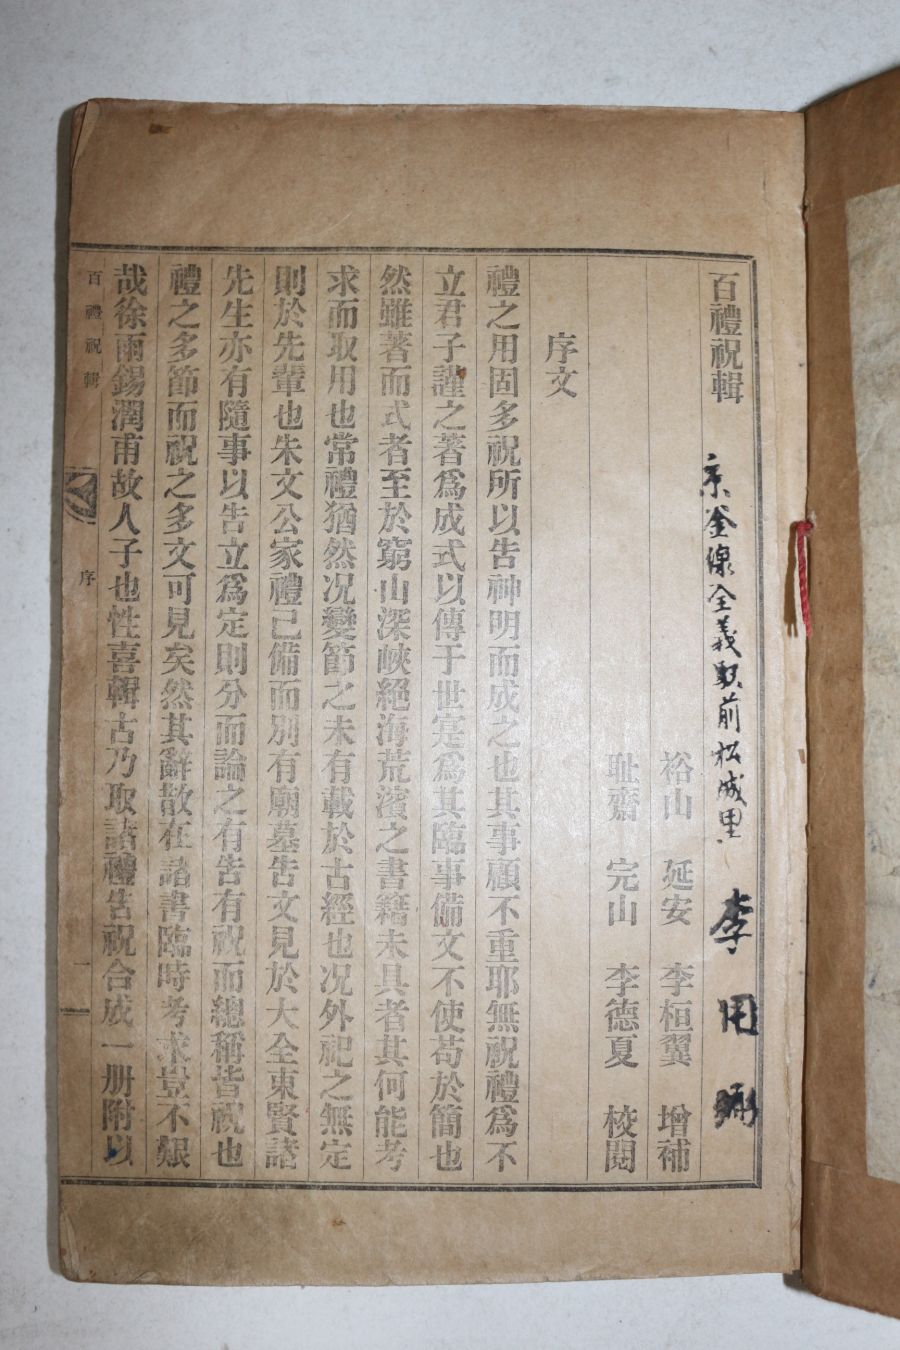 百禮祝輯 京釜線全義駅前松成里 李用
裕山 延安 李桓翼 增補
耻齋 完山 李德夏 校閱
序文
禮之用固多祝所以告神明而成之也其事顧不重耶無祝禮爲不
立君子謹之著爲成式以傳于世寔爲其臨事備文不使苟於簡也
然雖著而式者至於窮山深峽絕海荒濱之書籍未具者其何能考
求而取用也常禮猶然况變節之未有載於古經也况外祀之無定
則於先輩也朱文公家禮已備而別有廟墓告文見於大全東賢諸
先生亦有隨事以告立爲定則分而論之有告有祝而總稱皆祝也
禮之多節而祝之多文可見矣然其辭散在諸書臨時考求豈不艱
哉徐雨錫潤甫故人子也性喜輯古乃取諸禮告祝合成一册附以
百禮祝輯 序 一